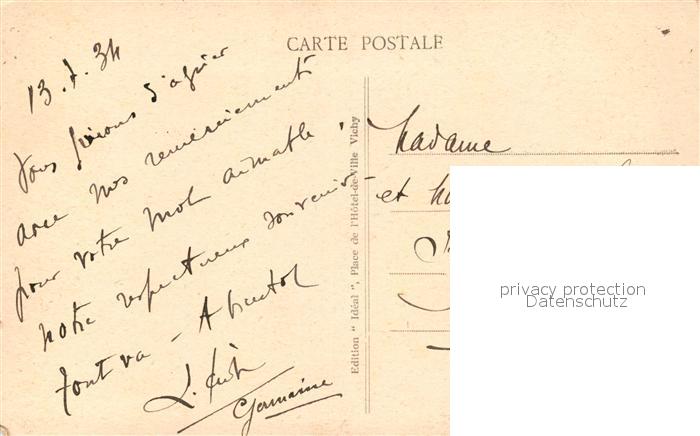 CARTE POSTALE
13.7.34
Vous prions d'agréer
avec nos remerciements
pour votre mot aimable,
notre respectueux souvenir
Tout va - A bientôt
L.
Germaine
Edition " Idéal ", Place de l'Hôtel-de-Ville Vichy
Madame
et
privacy protection
Datenschutz